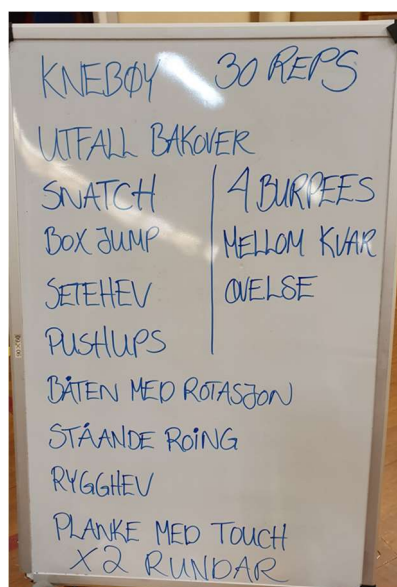 KNEBØY 30 REPS
UTFALL BAKOVER
SNATCH
BOX JUMP
SETEHEV
PUSHUPS
4 BURPEES
MELLOM KVAR
ØVELSE
BÅTEN MED ROTASJON
STÅANDE ROING
RYGGHEV
PLANKE MED TOUCH
X2 RUNDAR